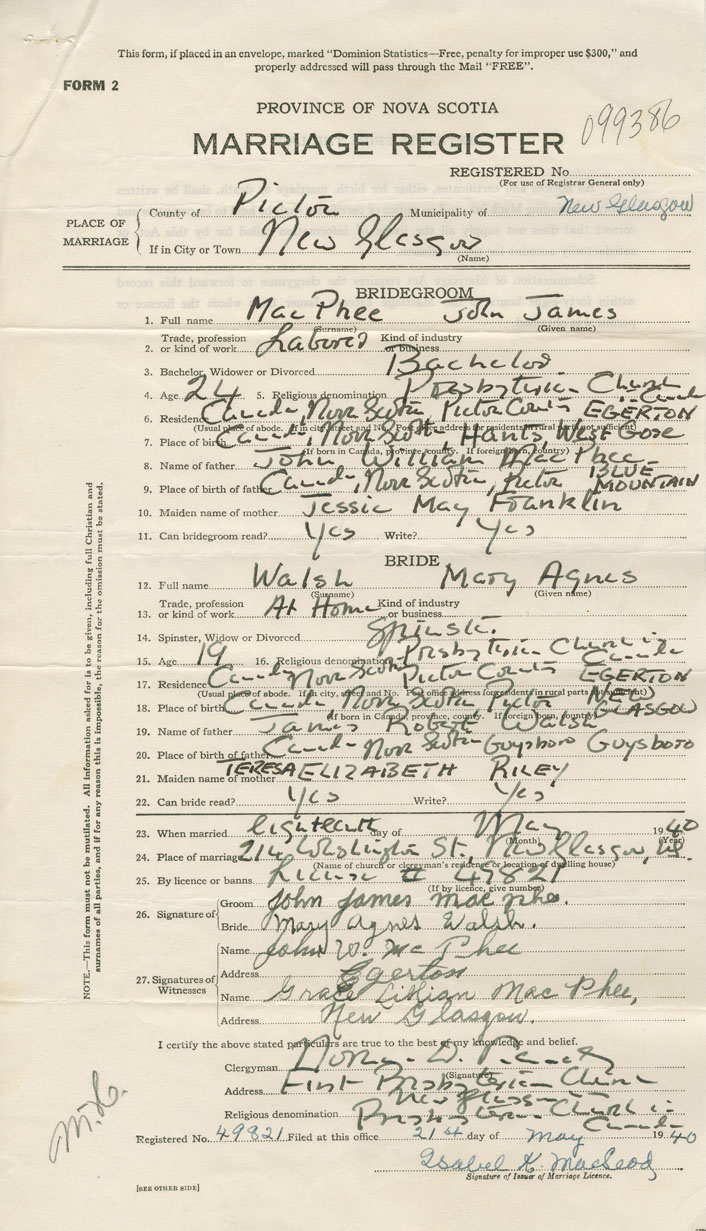 This form, if placed in an envelope, marked "Dominion Statistics—Free, penalty for improper use $300," and
properly addressed will pass through the Mail "FREE".
FORM 2
PROVINCE OF NOVA SCOTIA
MARRIAGE REGISTER 099386
REGISTERED No.
(For use of Registrar General only)
PLACE OF MARRIAGE
County of Pictou Municipality of New Glasgow
If in City or Town New Glasgow
(Name)
BRIDEGROOM
1. Full name MacPhee John James
(Surname) (Given name)
2. Trade, profession or kind of work Laborer Kind of industry or business
3. Bachelor, Widower or Divorced Bachelor
4. Age 24 5. Religious denomination Presbyterian Church in Canada
6. Residence Canada, Nova Scotia, Pictou County EGERTON
(Usual place of abode. If in city, street and No. Post office address for residents in rural parts not sufficient)
7. Place of birth Canada, Nova Scotia, Hants, West Gore
(If born in Canada, province, county. If foreign born, country)
8. Name of father John William MacPhee
9. Place of birth of father Canada, Nova Scotia, Pictou BLUE MOUNTAIN
10. Maiden name of mother Jessie May Franklin
11. Can bridegroom read? Yes Write? Yes
BRIDE
12. Full name Walsh Mary Agnes
(Surname) (Given name)
13. Trade, profession or kind of work At Home Kind of industry or business
14. Spinster, Widow or Divorced Spinster
15. Age 19 16. Religious denomination Presbyterian Church in Canada
17. Residence Canada Nova Scotia Pictou County EGERTON
(Usual place of abode. If in city, street and No. Post office address for residents in rural parts not sufficient)
18. Place of birth Canada, Nova Scotia, Pictou NEW GLASGOW
(If born in Canada, province, county. If foreign born, country)
19. Name of father James Robert Walsh
20. Place of birth of father Canada Nova Scotia Guysboro Guysboro
21. Maiden name of mother TERESA ELIZABETH RILEY
22. Can bride read? Yes Write? Yes
23. When married Eighteenth day of May 1940
(Month) (Year)
24. Place of marriage 214 Washington St., New Glasgow, N.S.
(Name of church or clergyman's residence or location of dwelling house)
25. By licence or banns License # 49821
(If by licence, give number)
26. Signature of
Groom John James MacPhee.
Bride Mary Agnes Walsh.
27. Signatures of Witnesses
Name John W. McPhee
Address Egerton
Name Grace Lillian MacPhee,
Address New Glasgow.
I certify the above stated particulars are true to the best of my knowledge and belief.
Clergyman Norman D.
(Signature)
Address First Presbyterian Church New Glasgow
Religious denomination Presbyterian Church in Canada
Registered No. 49821 Filed at this office 21st day of May 1940
Isabel K. MacLeod
Signature of Issuer of Marriage Licence.
[SEE OTHER SIDE]
NOTE.—This form must not be mutilated. All information asked for is to be given, including full Christian and
surnames of all parties, and if for any reason this is impossible, the reason for the omission must be stated.